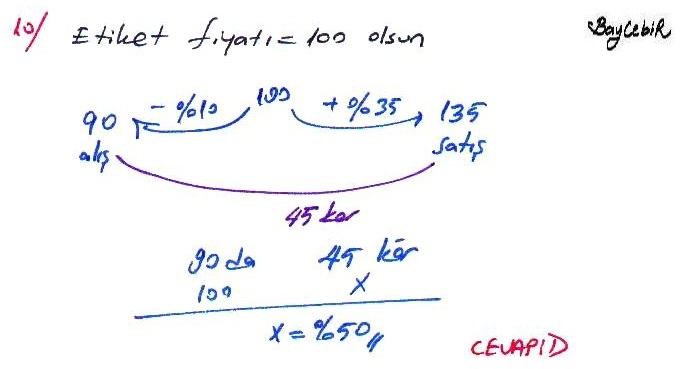 10/ Etiket fiyatı = 100 olsun
BayCebiR
90 - %10 100 + %35 135
alış satış
45 kar
90 da 45 kâr
100 X
X = %50 //
CEVAP D